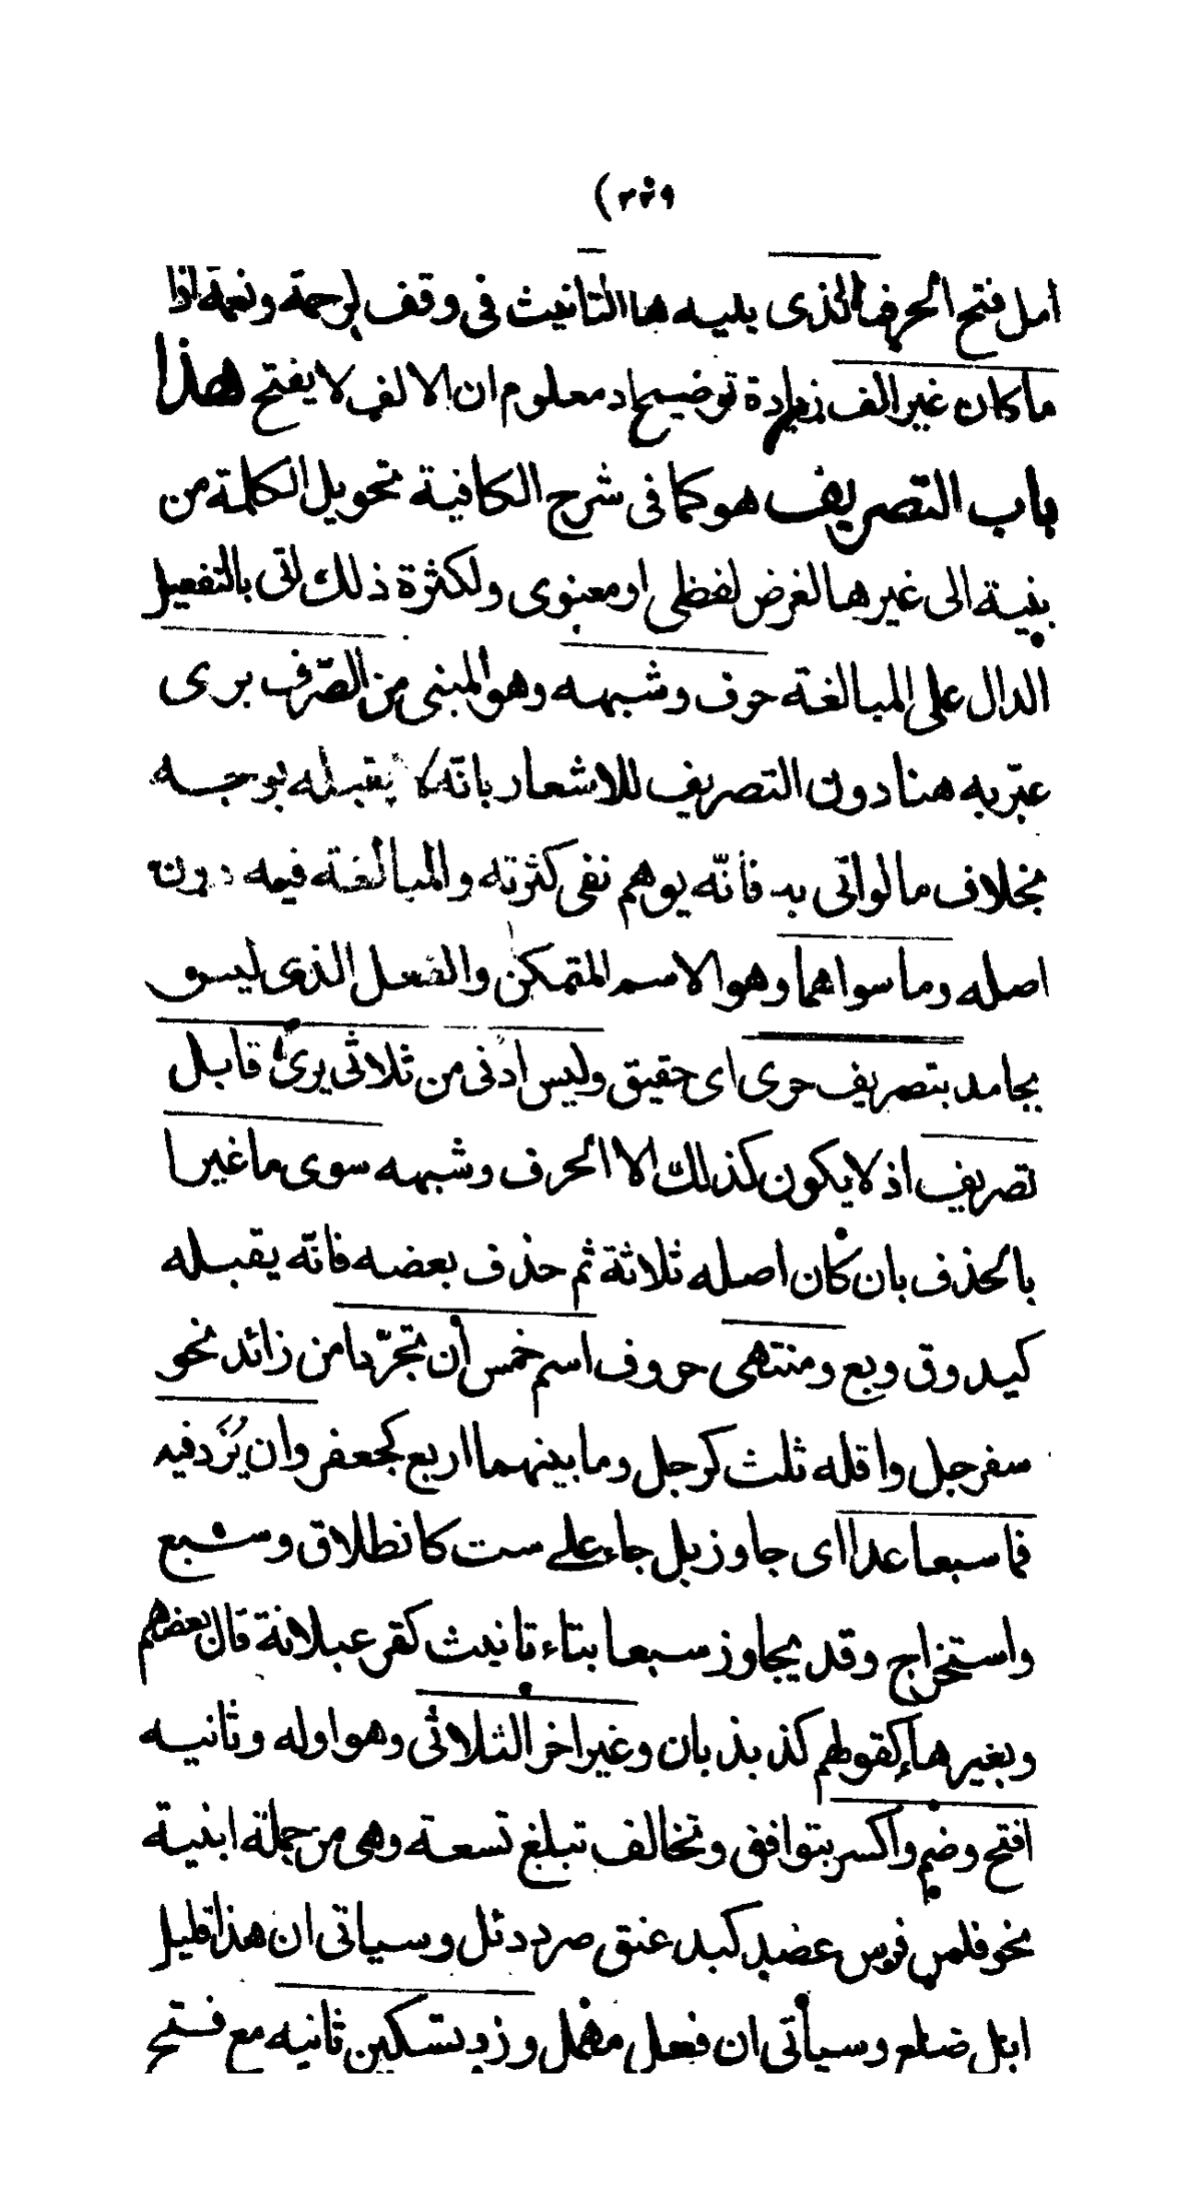 امل فتح الحرف الذى يليه ها التانيث فى وقف كرحمة ونعمة اذا
ما كان غير الف زيادة توضيح اذ معلوم ان الالف لا يفتح هذا
باب التصريف هو كما فى شرح الكافية تحويل الكلمة من
بنية الى غيرها لغرض لفظى او معنوى ولكثرة ذلك اتى بالتفعيل
الدال على المبالغة حرف وشبهه وهو المبنى من الصّرف برى
عبّر به هنا دون التصريف للاشعار بانّه لا يقبله بوجه
بخلاف ما لو اتى به فانّه يوهم نفى كثرته والمبالغة فيه دون
اصله وما سواهما وهو الاسم المتمكن والفعل الذى ليس
بجامد بتصريف حرى اى حقيق وليس ادنى من ثلاثى يرى قابل
تصريف اذ لا يكون كذلك الا الحرف وشبهه سوى ما غيرا
بالحذف بان كان اصله ثلاثة ثم حذف بعضه فانّه يقبله
كيد وق وبع ومنتهى حروف اسم خمس ان تجرّدا من زائد نحو
سفرجل واقله ثلث كرجل وما بينهما اربع كجعفر وان يزد فيه
فما سبعا عدا اى جاوز بل جاء على ست كانطلاق وسبع
واستخراج وقد يجاوز سبعا بتاء تانيث كقرعبلانة قال بعضهم
وبغيرها كقولهم كذبذبان وغير اخر الثلاثى وهو اوله وثانيه
افتح وضم واكسر بتوافق وتخالف تبلغ تسعة وهى من جملة ابنية
نحو فلس فرس عضد كبد عنق صرد دئل وسياتى ان هذا قليل
ابل ضلع وسيأتى ان فعل مهمل وزد تسكين ثانيه مع فتح